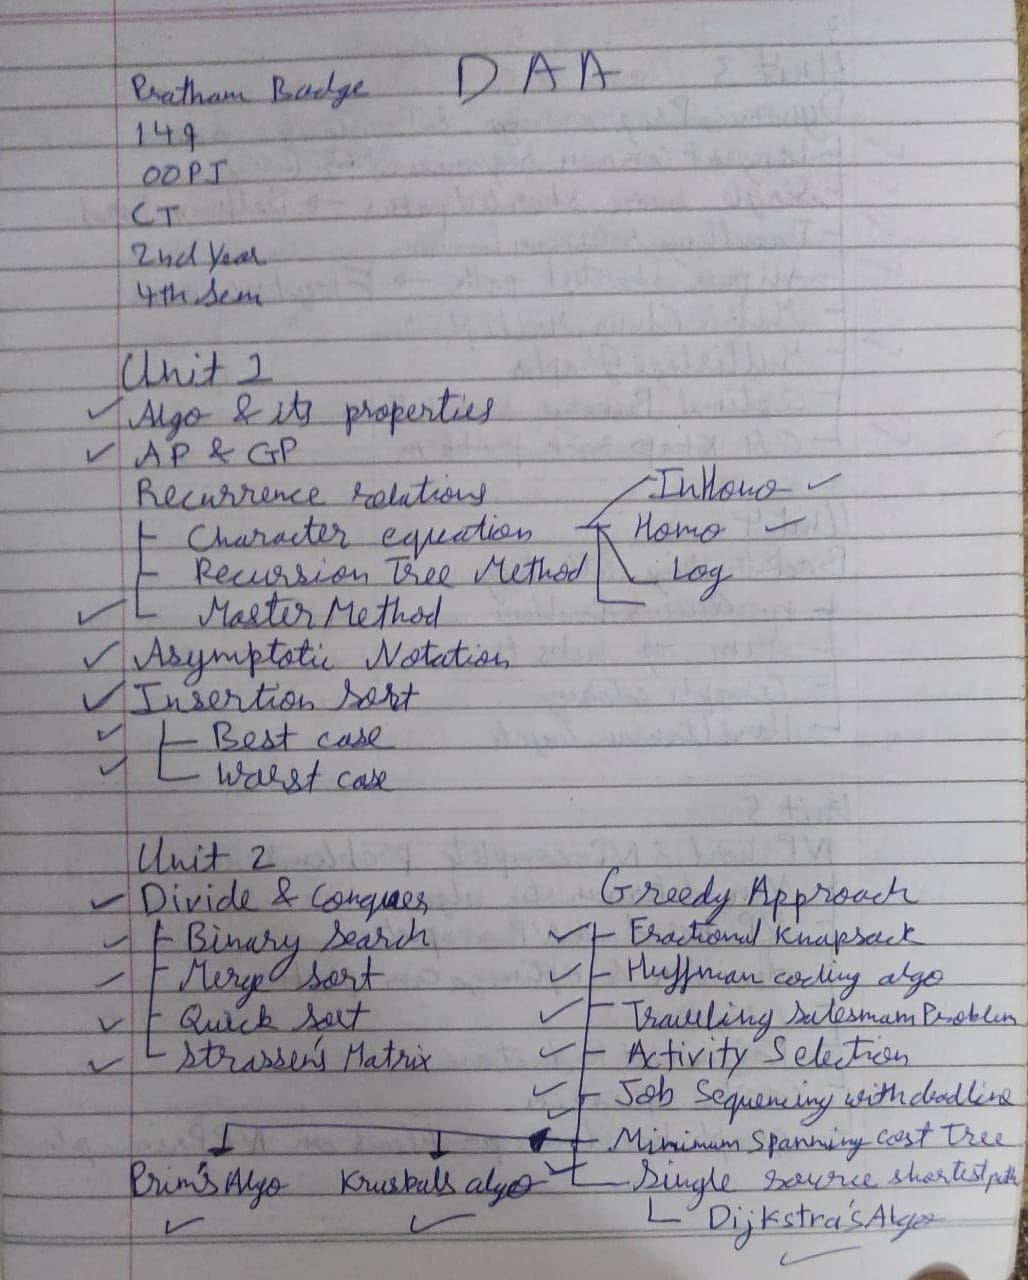 DAA
Pratham Badge
149
OOPJ
CT
2nd Year
4th Sem
Unit 1
Algo & its properties
AP & GP
Recurrence relations
Character equation
InHomo
Homo
Log
Recursion Tree Method
Master Method
Asymptotic Notation
Insertion Sort
Best case
Worst case
Unit 2
Divide & Conquer
Binary Search
Merge Sort
Quick Sort
Strassen's Matrix
Greedy Approach
Fractional Knapsack
Huffman coding algo
Travelling Salesman Problem
Activity Selection
Job Sequencing with deadline
Minimum Spanning cost Tree
Prim's Algo
Kruskal's algo
Single source shortest path
Dijkstra's Algo